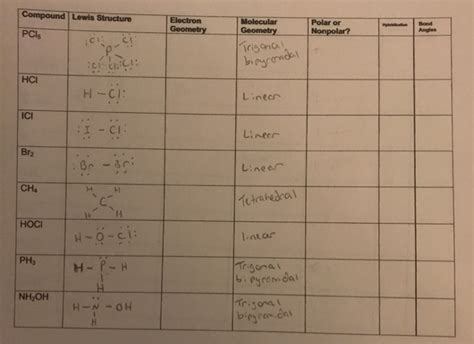 Compound Lewis Structure Electron Geometry Molecular Geometry Polar or Nonpolar? Hybridization Bond Angles
PCl₅ :Cl: :Cl: P :Cl: :Cl: :Cl: Trigonal bipyramidal
HCl H – Cl: Linear
ICl :I – Cl: Linear
Br₂ :Br – Br: Linear
CH₄ H H C H H Tetrahedral
HOCl H – O – Cl: linear
PH₃ H – P – H H Trigonal bipyramidal
NH₂OH H – N – OH H Trigonal bipyramidal